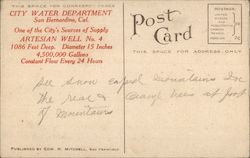 THIS SPACE FOR CORRESPONDENCE
CITY WATER DEPARTMENT
San Bernardino, Cal.
One of the City's Sources of Supply
ARTESIAN WELL No. 4
1086 Feet Deep. Diameter 15 Inches
4,500,000 Gallons
Constant Flow Every 24 Hours
Post Card
THIS SPACE FOR ADDRESS ONLY
See snow caped mountains In
the rear &
of mountains
PUBLISHED BY EDW. H. MITCHELL, SAN FRANCISCO